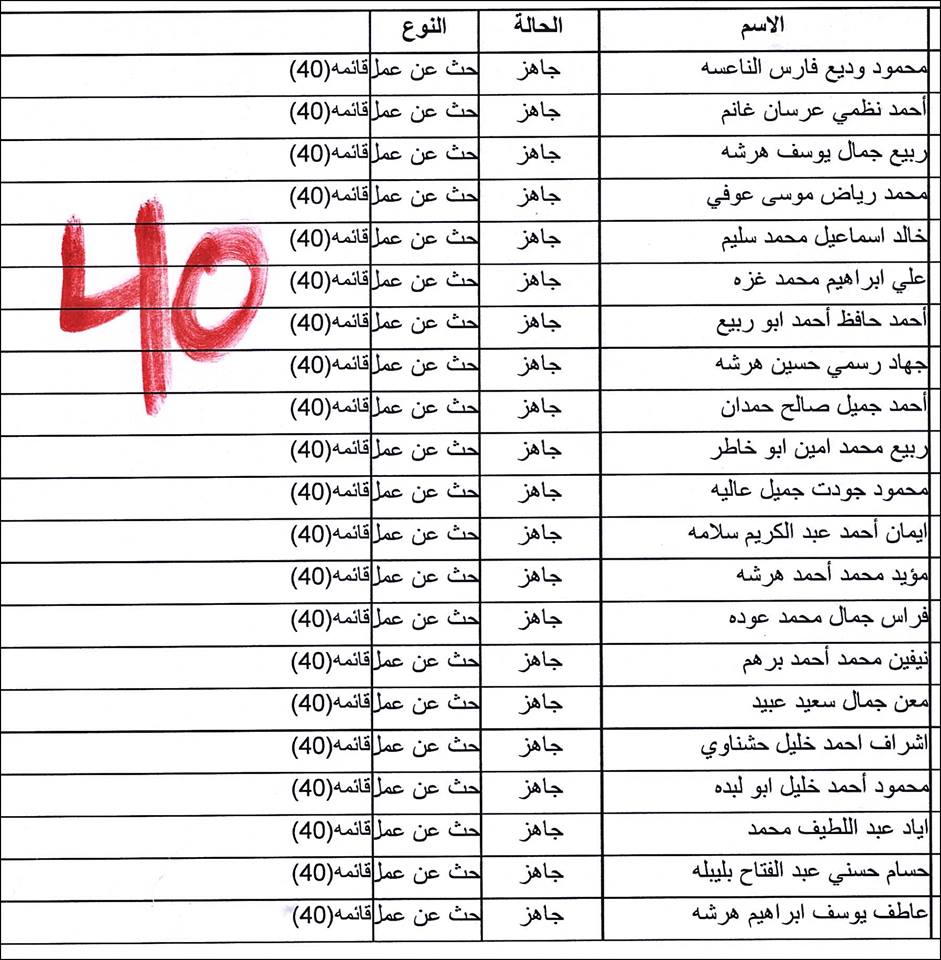 الاسم الحالة النوع
محمود وديع فارس الناعسه جاهز حث عن عمل قائمه(40)
أحمد نظمي عرسان غانم جاهز حث عن عمل قائمه(40)
ربيع جمال يوسف هرشه جاهز حث عن عمل قائمه(40)
محمد رياض موسى عوفي جاهز حث عن عمل قائمه(40)
خالد اسماعيل محمد سليم جاهز حث عن عمل قائمه(40)
علي ابراهيم محمد غزه جاهز حث عن عمل قائمه(40)
أحمد حافظ أحمد ابو ربيع جاهز حث عن عمل قائمه(40)
جهاد رسمي حسين هرشه جاهز حث عن عمل قائمه(40)
أحمد جميل صالح حمدان جاهز حث عن عمل قائمه(40)
ربيع محمد امين ابو خاطر جاهز حث عن عمل قائمه(40)
محمود جودت جميل عاليه جاهز حث عن عمل قائمه(40)
ايمان أحمد عبد الكريم سلامه جاهز حث عن عمل قائمه(40)
مؤيد محمد أحمد هرشه جاهز حث عن عمل قائمه(40)
فراس جمال محمد عوده جاهز حث عن عمل قائمه(40)
نيفين محمد أحمد برهم جاهز حث عن عمل قائمه(40)
معن جمال سعيد عبيد جاهز حث عن عمل قائمه(40)
اشراف احمد خليل حشناوي جاهز حث عن عمل قائمه(40)
محمود أحمد خليل ابو لبده جاهز حث عن عمل قائمه(40)
اياد عبد اللطيف محمد جاهز حث عن عمل قائمه(40)
حسام حسني عبد الفتاح بليبله جاهز حث عن عمل قائمه(40)
عاطف يوسف ابراهيم هرشه جاهز حث عن عمل قائمه(40)
40